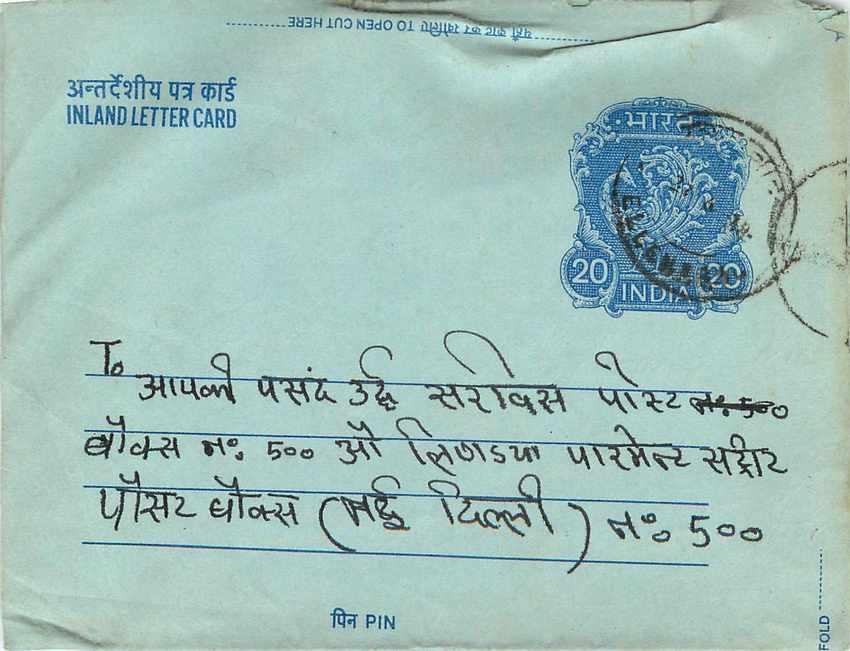 यहाँ काट कर खोलिए TO OPEN CUT HERE
अन्तर्देशीय पत्र कार्ड
INLAND LETTER CARD
भारत
20 INDIA 20
To
आपकी पसंद उर्दु सरविस पोस्ट न॰ 500
बौक्स न॰ 500 औ लिणडया पारमेन्ट सट्रीट
पौसट बौक्स (नई दिल्ली) न॰ 500
पिन PIN
FOLD